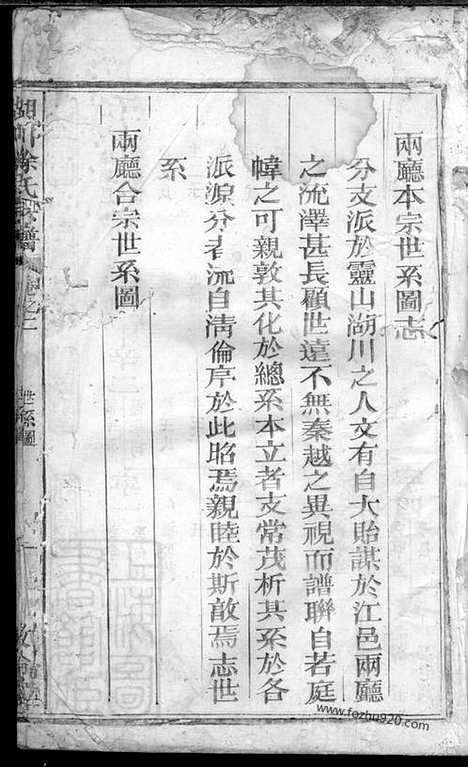 兩廳本宗世系圖志
分支派於靈山湖川之人文有自大貽謀於江邑兩廳
之流澤甚長顧世遠不無秦越之異視而譜聯自若庭
幃之可親敦其化於總系本立者支常茂析其系於各
派源分者流自淸倫序於此昭焉親睦於斯敦焉志世
系
兩廳合宗世系圖
徐氏宗譜
世系圖
www.fozhu920.com